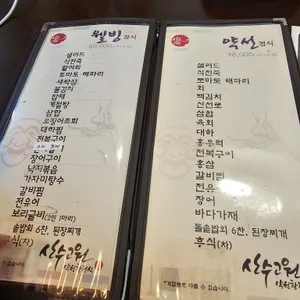 웰빙정식
샐러드
식전죽
활어회
토마토 해파리
새싹삼
물김치
잡채
계절탕
삼합
오징어초회
대하찜
전복구이
장어구이
낙지볶음
가자미탕수
갈비찜
전유어
보리굴비(2인 1마리)
돌솥밥외 6찬, 된장찌개
후식(차)
산수고원
약선정식
샐러드
식전죽
토마토 해파리
회
백김치
신선로
삼합
육회
대하
홍어
전복구이
홍삼
갈비찜
전유
장어
바다가재
돌솥밥외 6찬, 된장찌개
후식(차)
산수고원